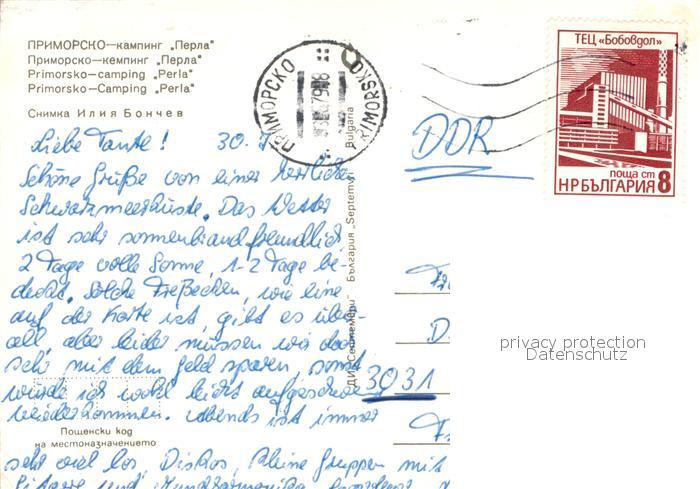 ПРИМОРСКО—кампинг „Перла"
Приморско—кемпинг „Перла"
Primorsko—camping „Perla"
Primorsko—Camping „Perla"
Снимка Илия Бончев
ПРИМОРСКО
PRIMORSKO
ТЕЦ «Бобовдол»
поща ст
НРБЪЛГАРИЯ 8
DDR
Liebe Tante! 30.7.
Schöne Grüße von einer herrlichen
Schwarzmeerküste. Das Wetter
ist sehr sonnenbrandfreundlich
2 Tage volle Sonne, 1-2 Tage be-
deckt. Solche Freßecken, wie eine
auf der Karte ist, gibt es über-
all, aber leider müssen wir doch
sehr mit dem Geld sparen, sonst
würde ich wohl leicht aufgeschwe
wiederkommen. Abends ist immer
sehr viel los, Diskos, kleine Gruppen mit
Gitarre und Mundharmonika
3031
Пощенски код
на местоназначението
ДИ „Септември" България „Septemvri" Bulgaria
privacy protection
Datenschutz